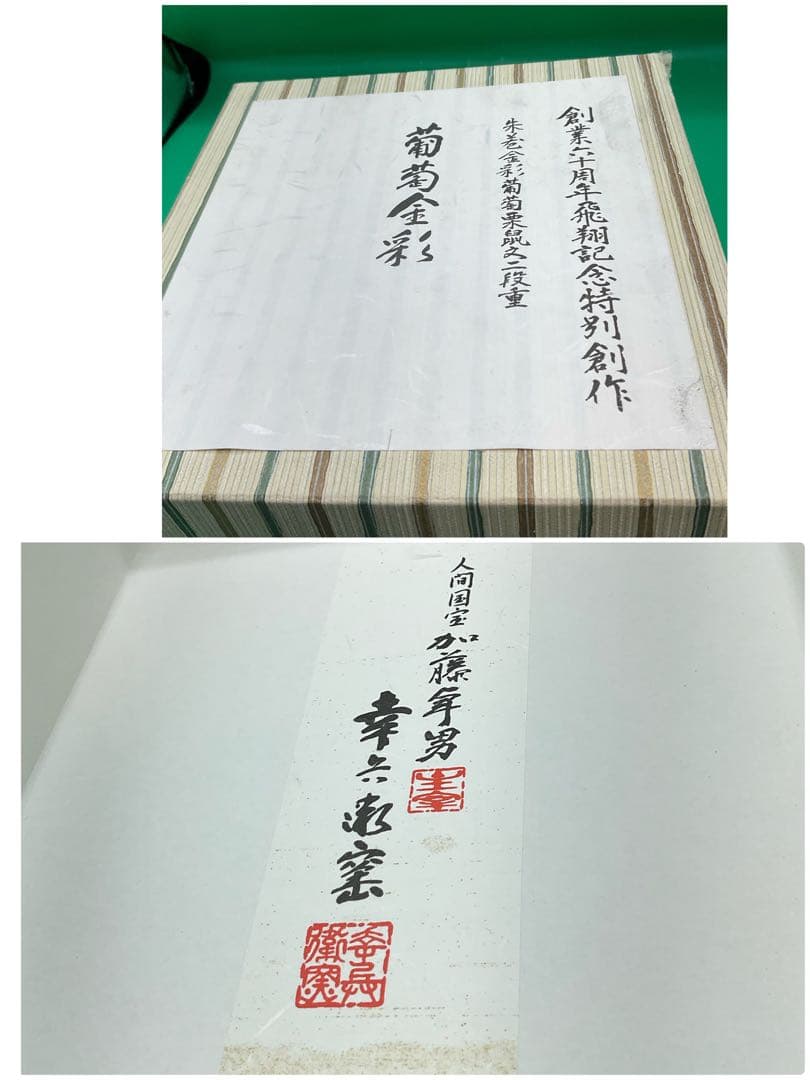 創業六十周年飛翔記念特別創作
朱巻金彩葡萄栗鼠文二段重
葡萄金彩
人間国宝 加藤卓男
幸兵衛窯
幸兵衛窯